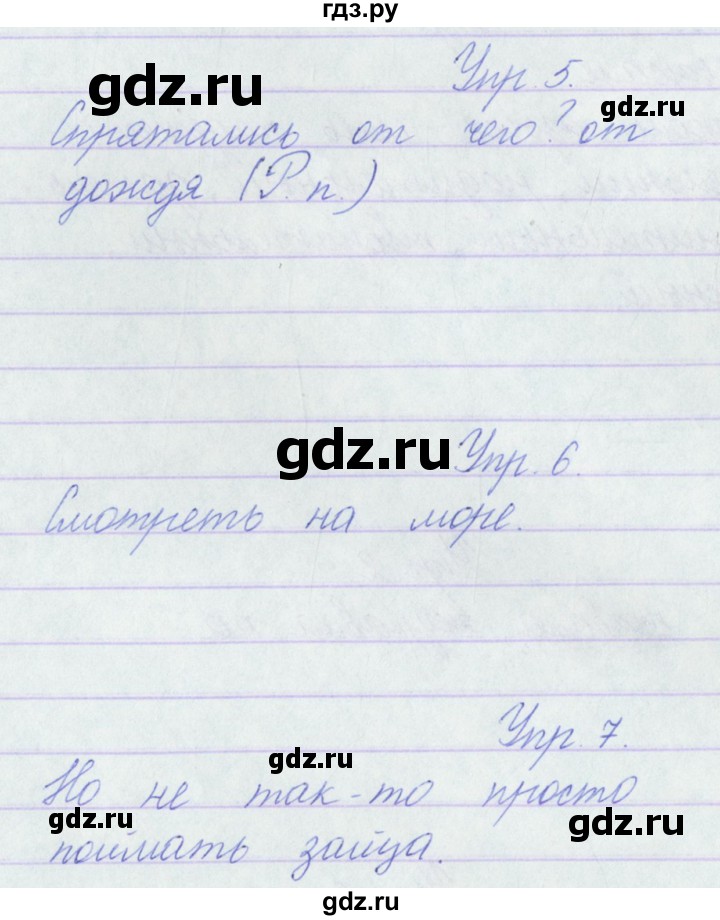 гдз.ру
gdz.ru
Упр. 5.
gdz.ru
Спрятались от чего? от
дождя (Р. п.)
gdz.ru
Упр. 6.
Смотреть на море.
Упр. 7.
gdz.ru
Но не так-то просто
gdz.ru
gdz.ru
поймать зайца.
gdz.ru